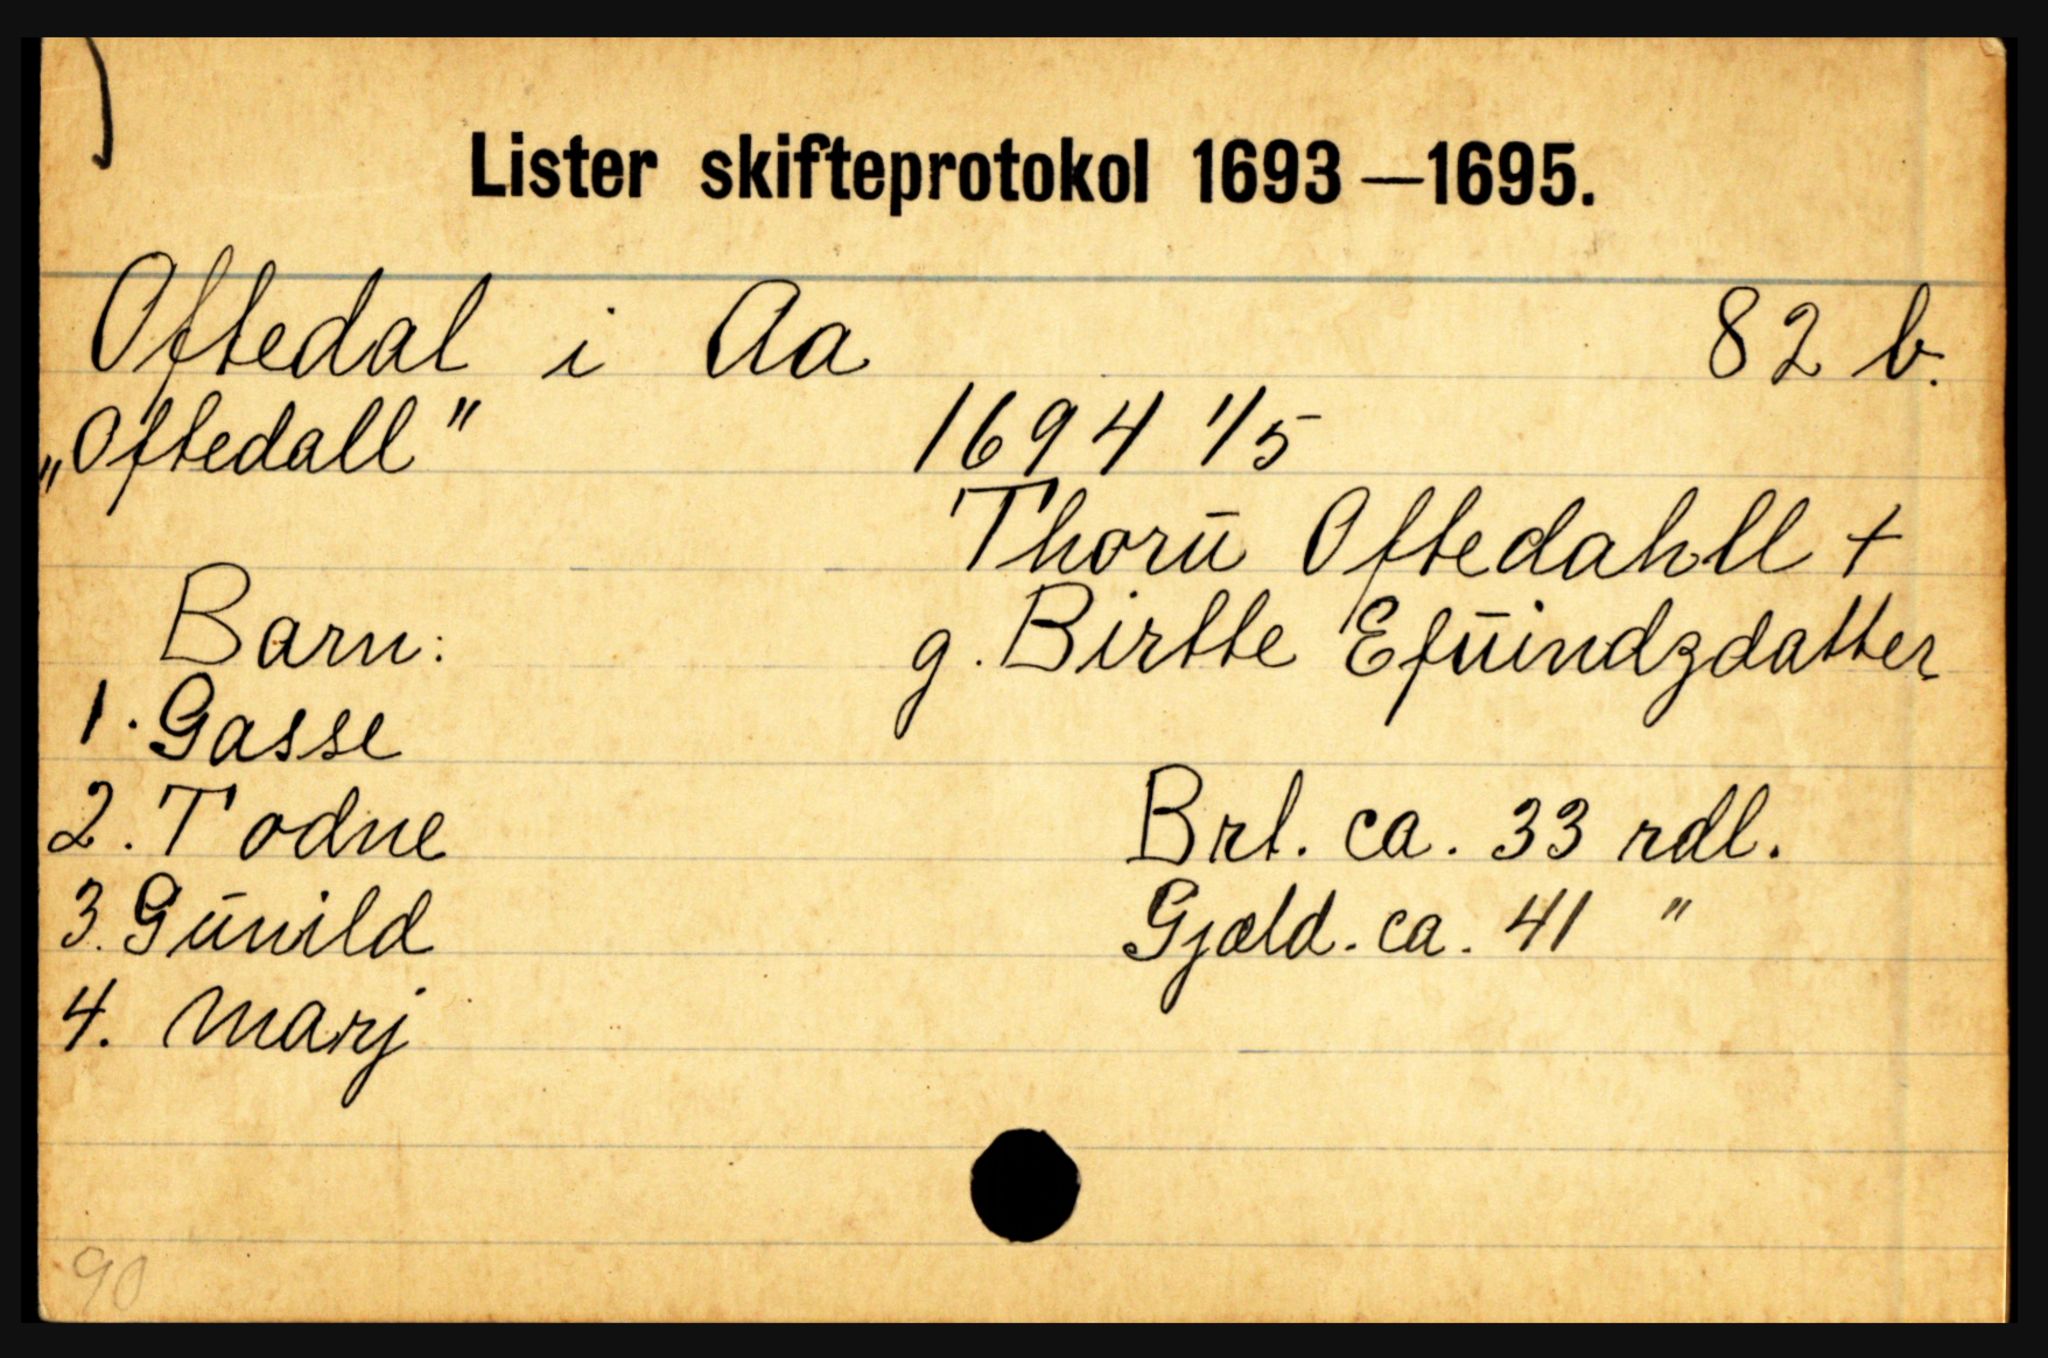 Lister skifteprotokol 1693—1695.
Oftedal i Aa 82 b.
„Oftedall" 1694 1/5
Thorū Oftedahll +
Barn: g. Birtte Efūindzdatter
1. Gasse
2. Todne Brt. ca. 33 rdl.
3. Gūnild Gjæld. ca. 41 "
4. Marj
90